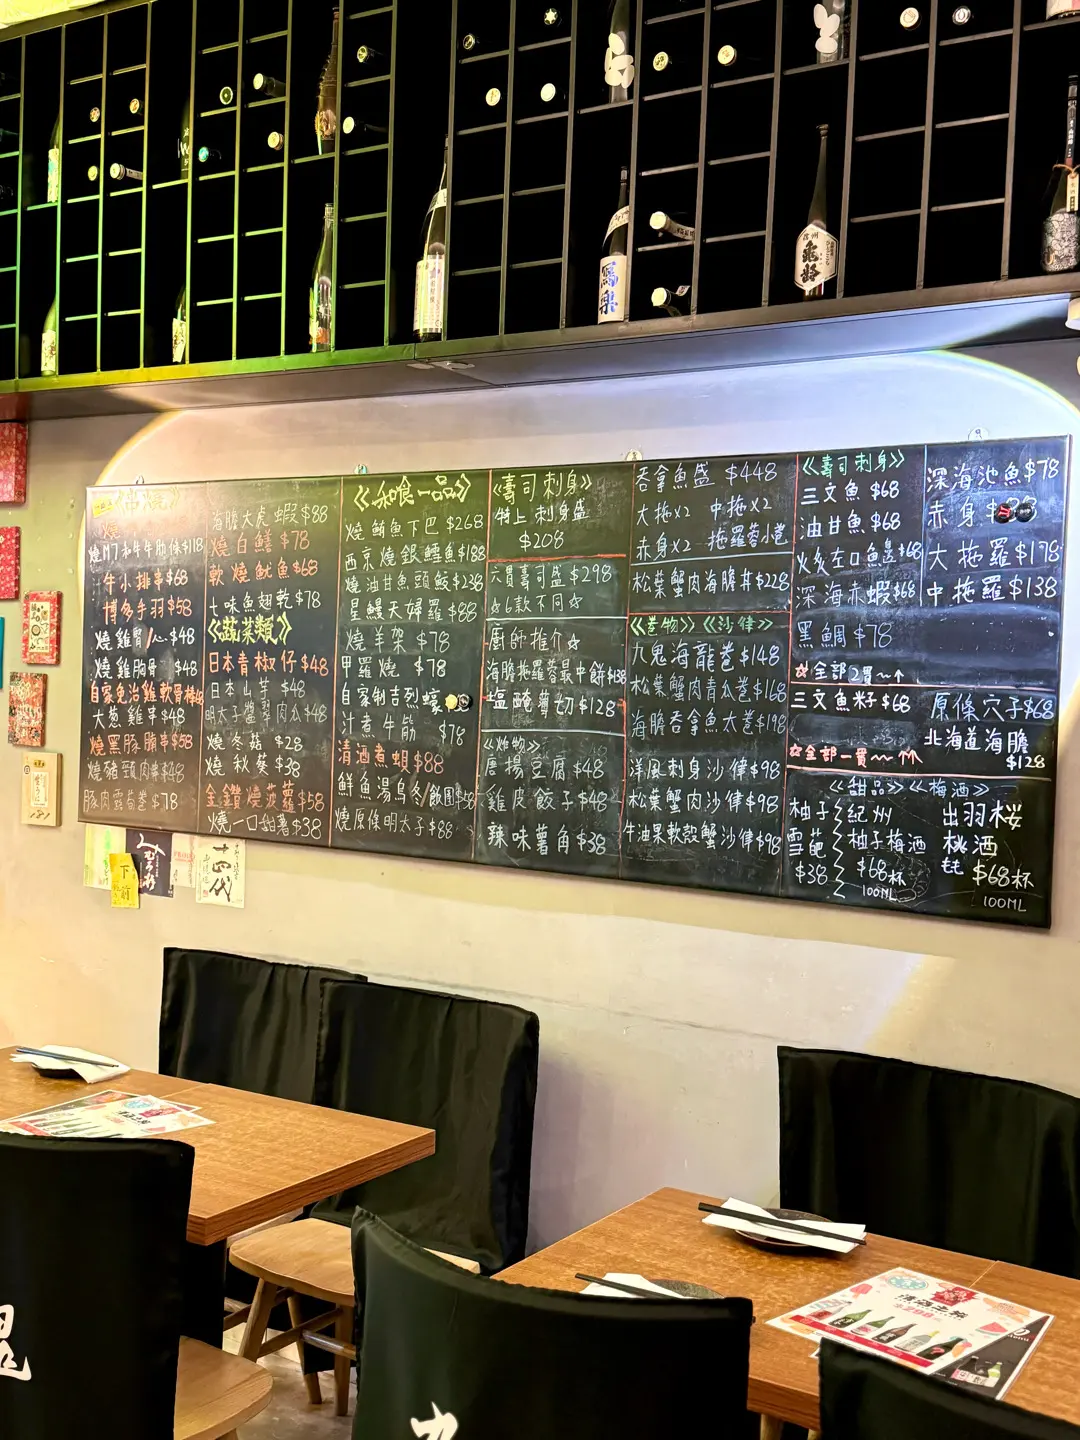 寫樂
信州
亀齢
《串燒》
燒M7和牛牛肋條$118
牛小排串$68
博多手羽$58
燒雞腎 $48
燒雞膈骨 $48
自家免治雞軟骨棒$68
大葱雞串$48
燒黑豚腩串$58
燒豬頸肉串$48
豚肉露荀卷$78
海膽大虎蝦$88
燒白鱔$78
軟燒魷魚$68
七味魚翅乾$78
《蔬菜類》
日本青椒仔$48
日本山芋$48
明太子醬翠肉瓜$48
燒冬菇$28
燒秋葵$38
金鑽燒菠蘿$58
燒一口甜薯$38
《和喰一品》
燒鰤魚下巴$268
西京燒銀鱈魚$188
燒油甘魚頭鮫$238
星鰻天婦羅$88
燒羊架$78
甲羅燒$78
自家制吉列蠔
汁煮牛筋 $78
清酒煮蜆$88
鮮魚湯烏冬/飯團$58
燒原條明太子$88
《壽司刺身》
特上刺身盛
$208
六貫壽司盛$298
☆6款不同☆
廚師推介☆
海膽拖羅蓉最中餅$138
塩醃蘿切$128
《炸物》
唐揚豆腐$48
雞皮餃子$48
辣味薯角$38
吞拿魚盛 $448
大拖x2 中拖x2
赤身x2 拖羅蓉小卷
松葉蟹肉海膽丼$228
《卷物》《沙律》
九鬼海龍卷$148
松葉蟹肉青瓜卷$168
海膽吞拿魚太卷$198
洋風刺身沙律$98
松葉蟹肉沙律$98
牛油果軟殼蟹沙律$98
《壽司刺身》
三文魚$68
油甘魚$68
火炙左口魚邊$68
深海赤蝦$68
黑鯛$78
☆全部2貫~↑
三文魚籽$68
☆全部一貫~↑↑
深海池魚$78
赤身$
大拖羅$178
中拖羅$138
原條穴子$68
北海道海膽
$128
《甜品》《梅酒》
柚子
雪葩
$38
紀州
柚子梅酒
$68杯
100ML
出羽桜
桃酒
$68杯
100ML
十四代
下前
清酒之類